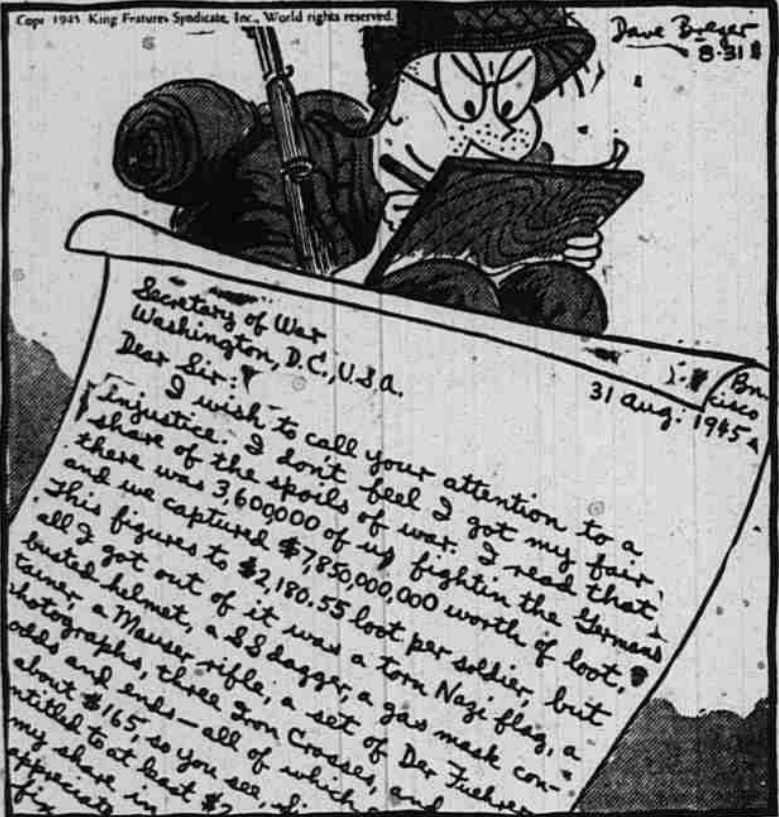 Copr 1945 King Features Syndicate, Inc., World rights reserved.
Dave Breger
8-31
Secretary of War
Washington, D.C., U.S.A.
Dear Sir:
31 Aug. 1945
I wish to call your attention to a
injustice. I don't feel I got my fair
share of the spoils of war. I read that
there was 3,600,000 of us fightin the Germans
and we captured $7,850,000,000 worth of loot.
This figures to $2,180.55 loot per soldier, but
all I got out of it was a torn Nazi flag, a
busted helmet, a SS dagger, a gas mask con-
tainer, a Mauser rifle, a set of Der Fuehrer
photographs, three Iron Crosses, and
odds and ends—all of which
about $165, so you see,
ntitled to at least $2
my share in
appreciate
fix